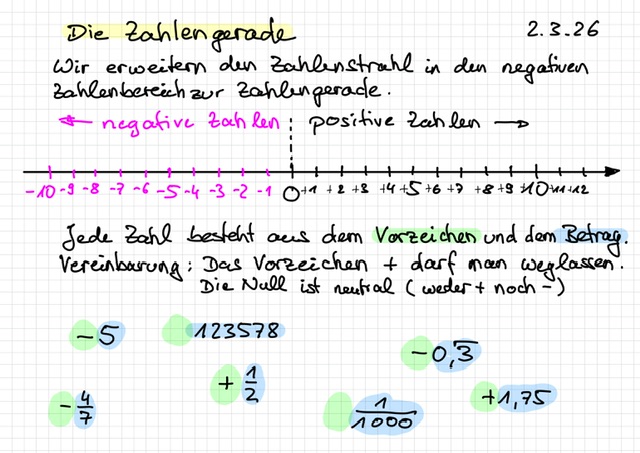 Die Zahlengerade 2.3.26
Wir erweitern den Zahlenstrahl in den negativen
Zahlenbereich zur Zahlengerade.
← negative Zahlen positive Zahlen →
-10 -9 -8 -7 -6 -5 -4 -3 -2 -1 0 +1 +2 +3 +4 +5 +6 +7 +8 +9 +10 +11 +12
Jede Zahl besteht aus dem Vorzeichen und dem Betrag.
Vereinbarung: Das Vorzeichen + darf man weglassen.
Die Null ist neutral (weder + noch -)
-5 123578 -0,3̅
-4/7 +1/2 1/1000 +1,75